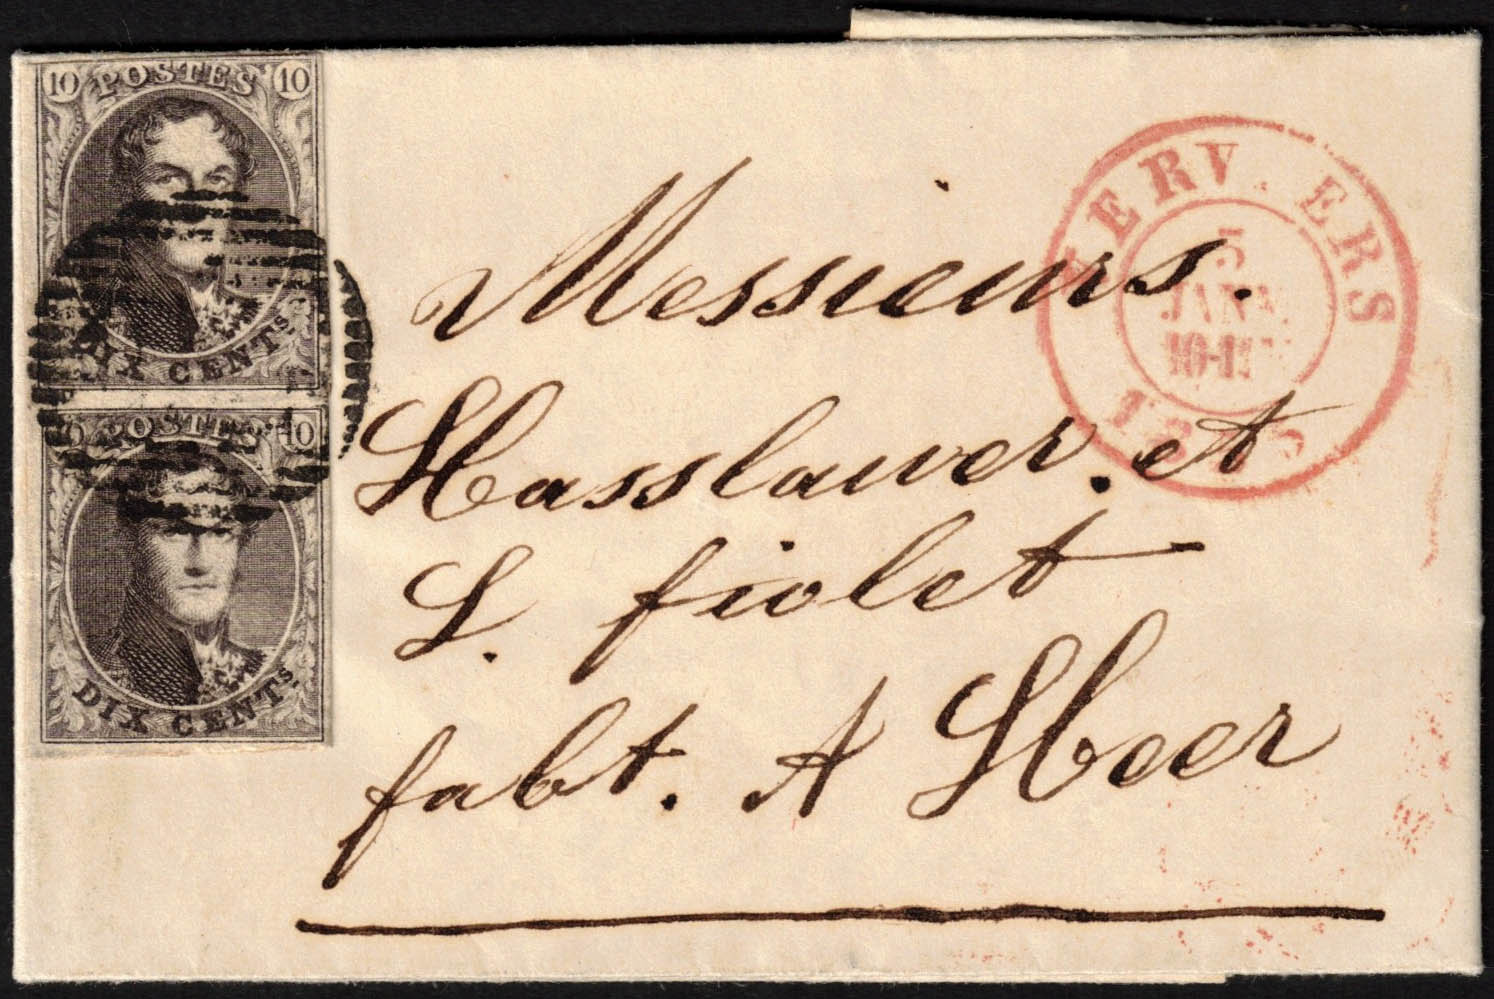 10 POSTES 10
DIX CENTS.
POSTES 10
DIX CENTS.
VERVIERS
5
JANV.
10-11
Messieurs.
Hasslauer. et
L. fiolet
fabt. A Heer